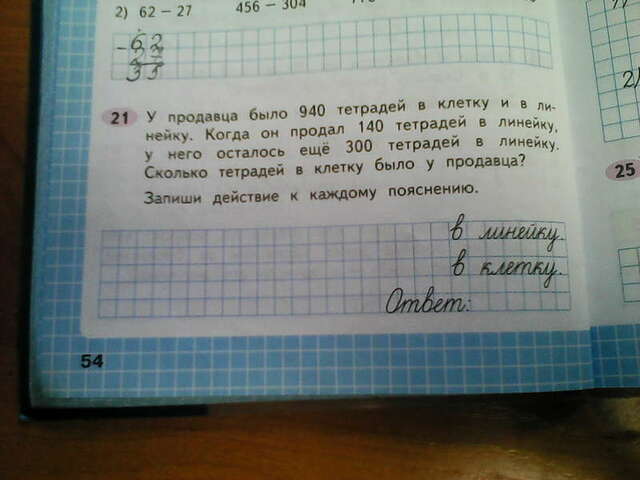 2) 62 − 27 456 − 304
− 62
27
35
2)
21 У продавца было 940 тетрадей в клетку и в ли-
нейку. Когда он продал 140 тетрадей в линейку,
у него осталось ещё 300 тетрадей в линейку.
Сколько тетрадей в клетку было у продавца?
25
Запиши действие к каждому пояснению.
в линейку.
в клетку.
Ответ:
54